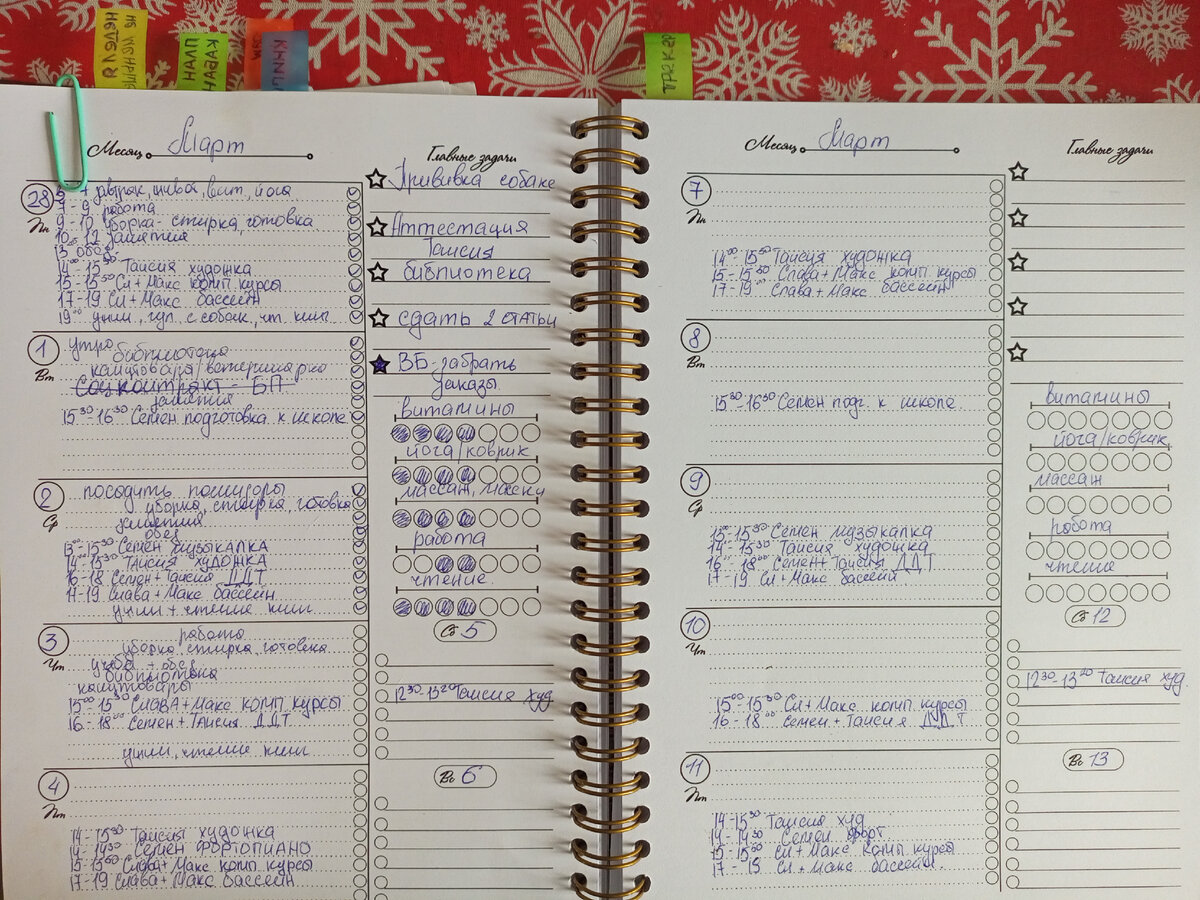 КАВАН
ПЛАН
ТРЕКЕР
Месяц Март
28
Пн
7-9 работа
9-10 уборка- стирка, готовка
10-12 занятия
13 обед
14⁰⁰-15³⁰ Таисия художка
15-15⁵⁰ Сл+Макс комп курсы
17-19 Сл+Макс бассейн
1
Вт
утро
библиотека
канцтовары/ветеринарка
Соцконтракт - БП
занятия
15³⁰-16³⁰ Семен подготовка к школе
2
Ср
посадить помидоры
уборка, стирка, готовка
занятия
обед
Семен музыкалка
14⁰⁰-15³⁰ Таисия художка
16-18 Семен+Таисия ДДТ
17-19 Слава+Макс бассейн
ужин + чтение книг
3
Чт
работа
уборка стирка готовка
учеба + обед
библиотека
канцтовары
Слава+Макс комп курсы
16-18⁰⁰ Семен+Таисия ДДТ
ужин, чтение книг
4
Пт
14-15³⁰ Таисия художка
14-14³⁰ Семен фортопиано
15-15⁵⁰ Слава+Макс комп курсы
17-19 Слава+Макс бассейн
Главные задачи
Прививка собаке
Аттестация
Таисия
библиотека
сдать 2 статьи
ВБ-забрать
заказы
витамины
йога/коврик
массаж, маски
работа
чтение
Сб 5
12³⁰-13²⁰ Таисия худ
Вс 6
Месяц Март
7
Пн
14⁰⁰-15³⁰ Таисия художка
15-15⁵⁰ Слава+Макс комп курсы
17-19⁰⁰ Слава+Макс бассейн
8
Вт
15³⁰-16³⁰ Семен подг. к школе
9
Ср
Семен музыкалка
14-15³⁰ Таисия художка
16-18⁰⁰ Семен+Таисия ДДТ
17-19 Сл+Макс бассейн
10
Чт
Сл+Макс комп курсы
16-18⁰⁰ Семен+Таисия ДДТ
11
Пт
14-15³⁰ Таисия худ
14-14³⁰ Семен форт
15-15⁵⁰ Сл+Макс комп курсы
17-19 Сл+Макс бассейн.
Главные задачи
витамины
йога/коврик
массаж
работа
чтение
Сб 12
12³⁰-13²⁰ Таисия худ.
Вс 13